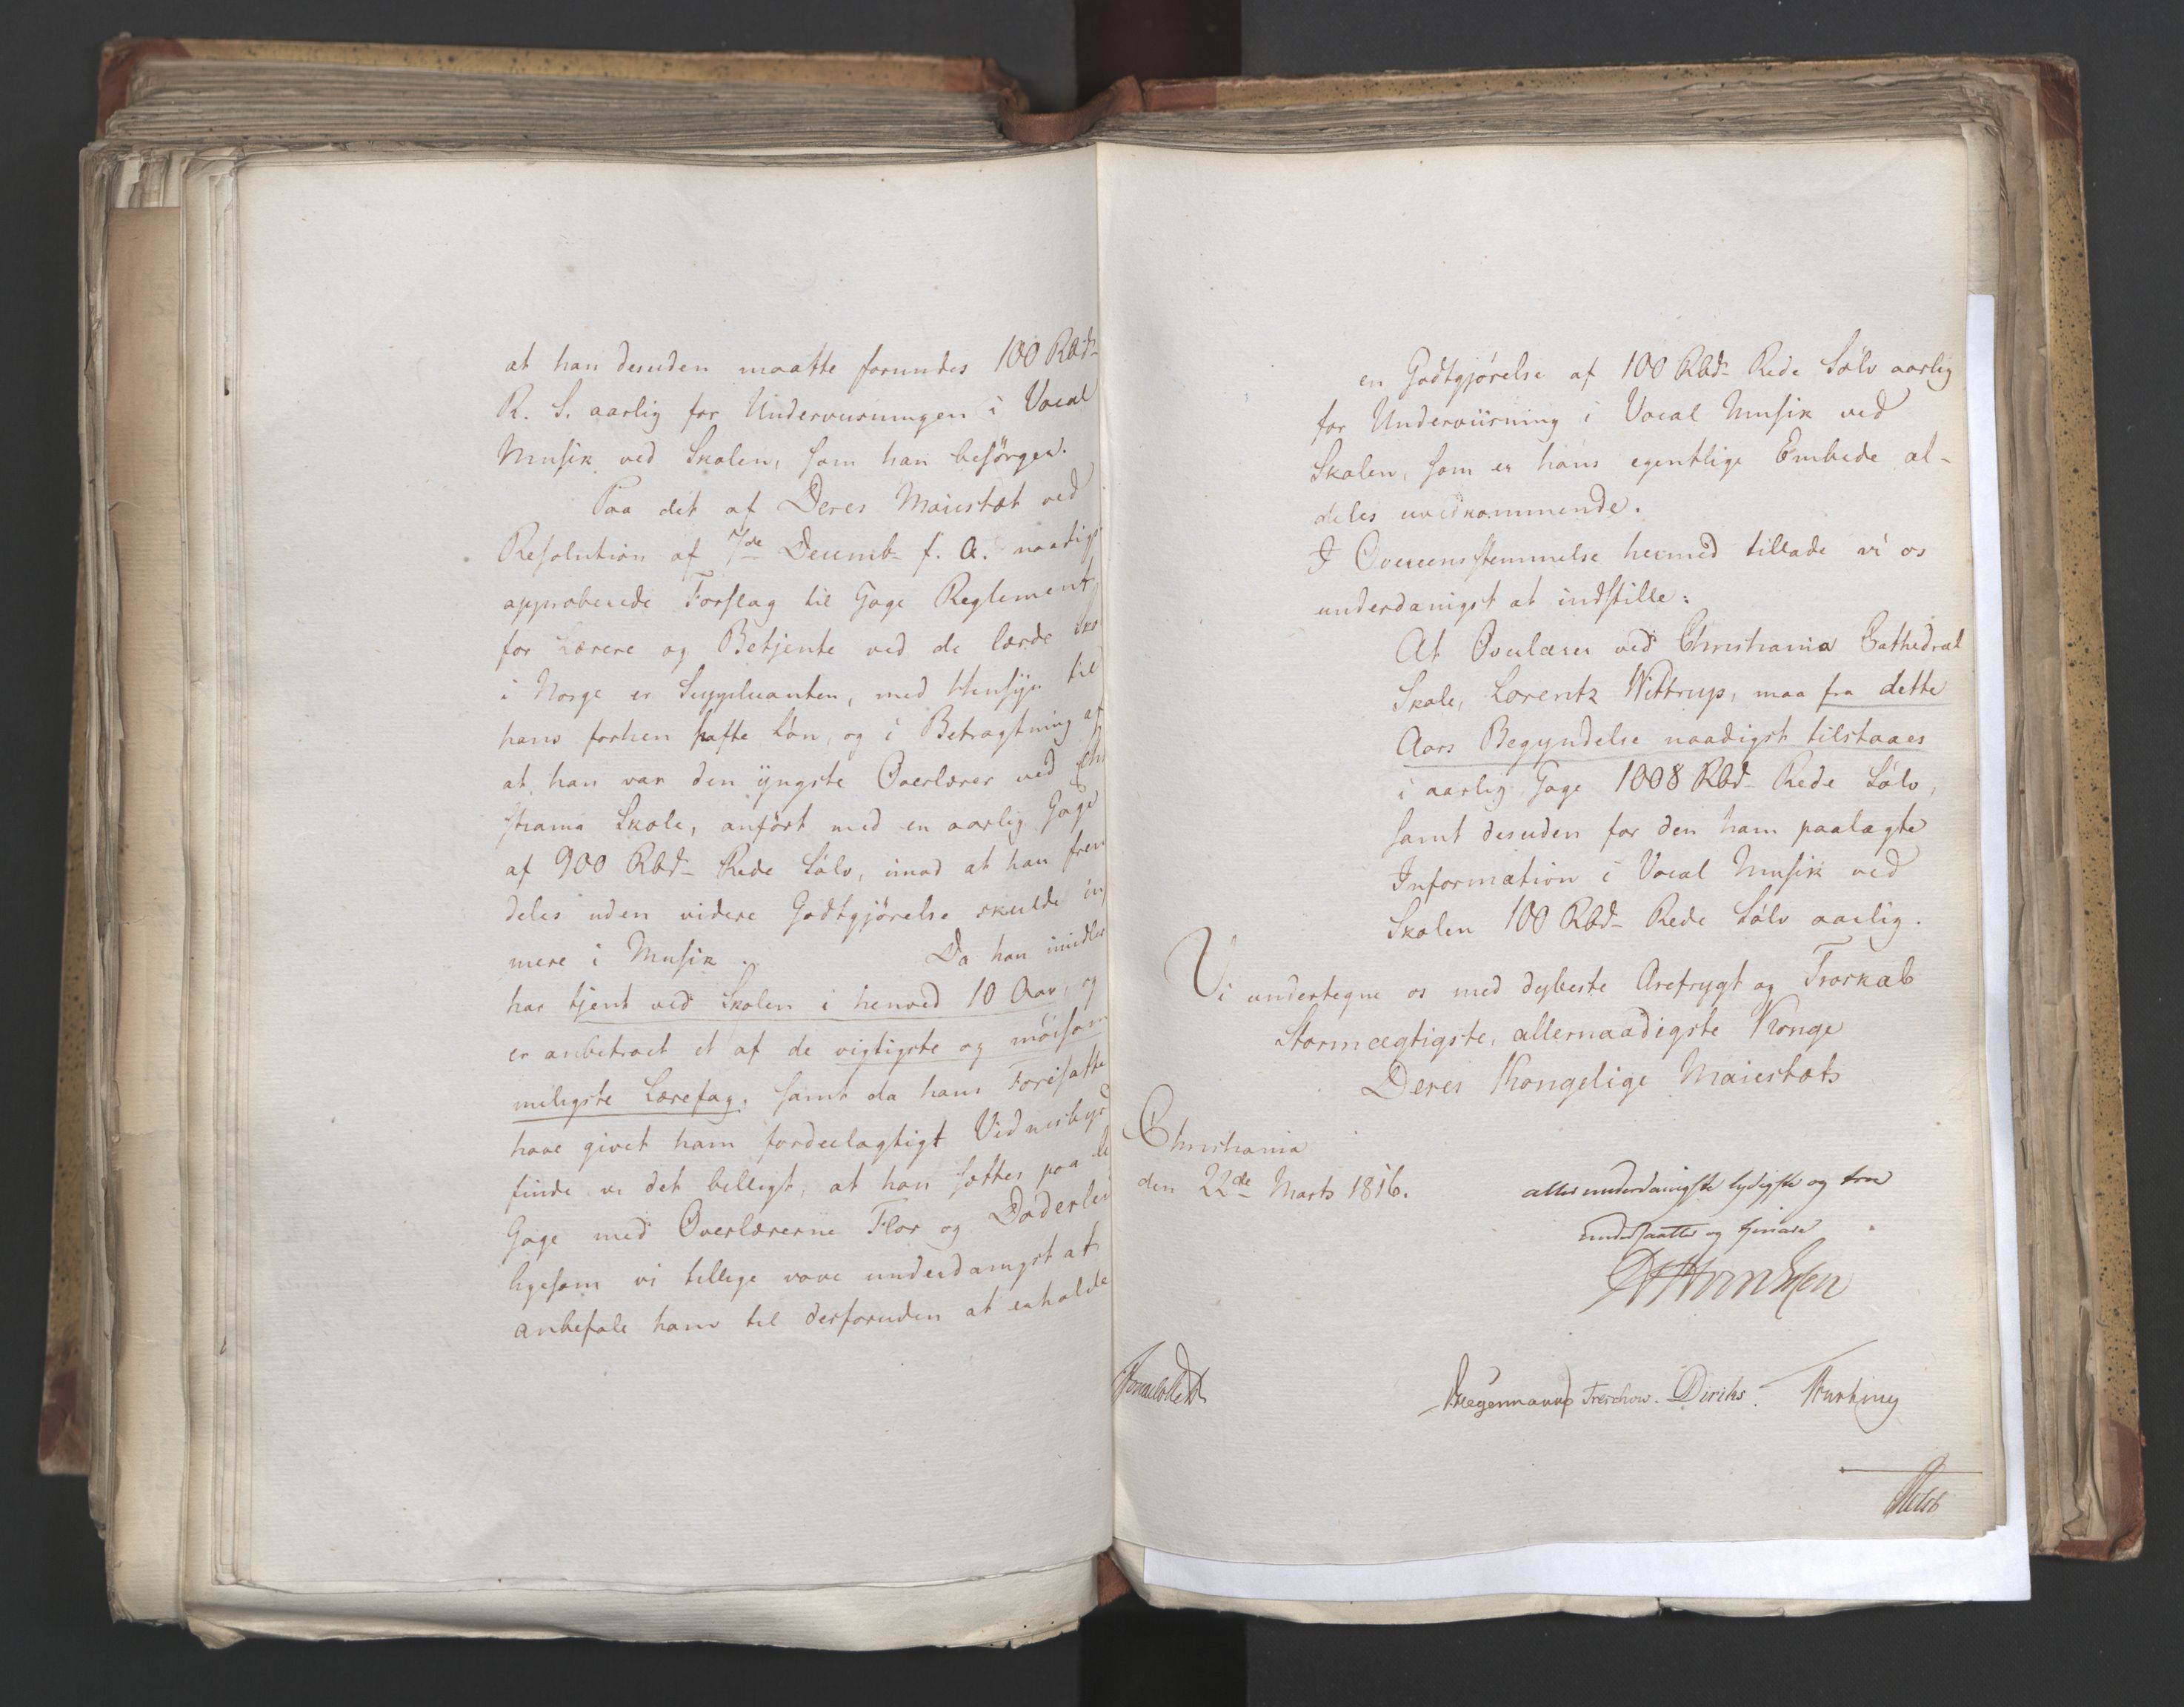 at han desuden maatte forundes 100 Rbd-
R. S. aarlig for Underviisningen i Vocal
Musik ved Skolen, som han besørger.
Paa det af Deres Maiestæt ved
Resolution af 7de Decemb- f. A. naadigs
approberede Forslag til Gage Reglement
for Lærere og Betjente ved de lærde Sko
i Norge er Supplicanten, med Hensyn til
hans forhen hafte Løn, og i Betragtning af
at han var den yngste Overlærer ved Chri
stiania Skole, anført med en aarlig Gage
af 900 Rbd- Rede Sølv, imod at han frem
deles uden videre Godtgjørelse skulde in
mere i Musik. Da han imidler
har tjent ved Skolen i henved 10 Aar, og
er anbetroet et af de vigtigste og møisom
meligste Lærefag, samt da hans Foresatte
have givet ham fordeelagtigt Vidnesbyrd
finde vi det billigt, at han sættes paa li
Gage med Overlærerne Flor og Døderlei
ligesom vi tillige vove underdanigst at
anbefale ham til desforuden at erholde
en Godtgjørelse af 100 Rbd- Rede Sølv aarlig
for Underviisning i Vocal Musik ved
Skolen, som er hans egentlige Embede al-
deles uvedkommende.
I Overeensstemmelse hermed tillade vi os
underdanigst at indstille:
At Overlærer ved Christiania Cathedral
Skole, Lorentz Wittrup, maa fra dette
Aars Begyndelse naadigst tilstaaes
i aarlig Gage 1008 Rbd- Rede Sølv,
samt desuden for den ham paalagte
Information i Vocal Musik ved
Skolen 100 Rbd- Rede Sølv aarlig.
Vi undertegne os med dybeste Ærefrygt og Troskab
Stormægtigste, allernaadigste Konge
Deres Kongelige Maiestæts
Christiania
den 22de Marts 1816.
allerunderdanigste lydigste og troe
undersaatter og tjenere
Hegermann Treschow. Diriks.